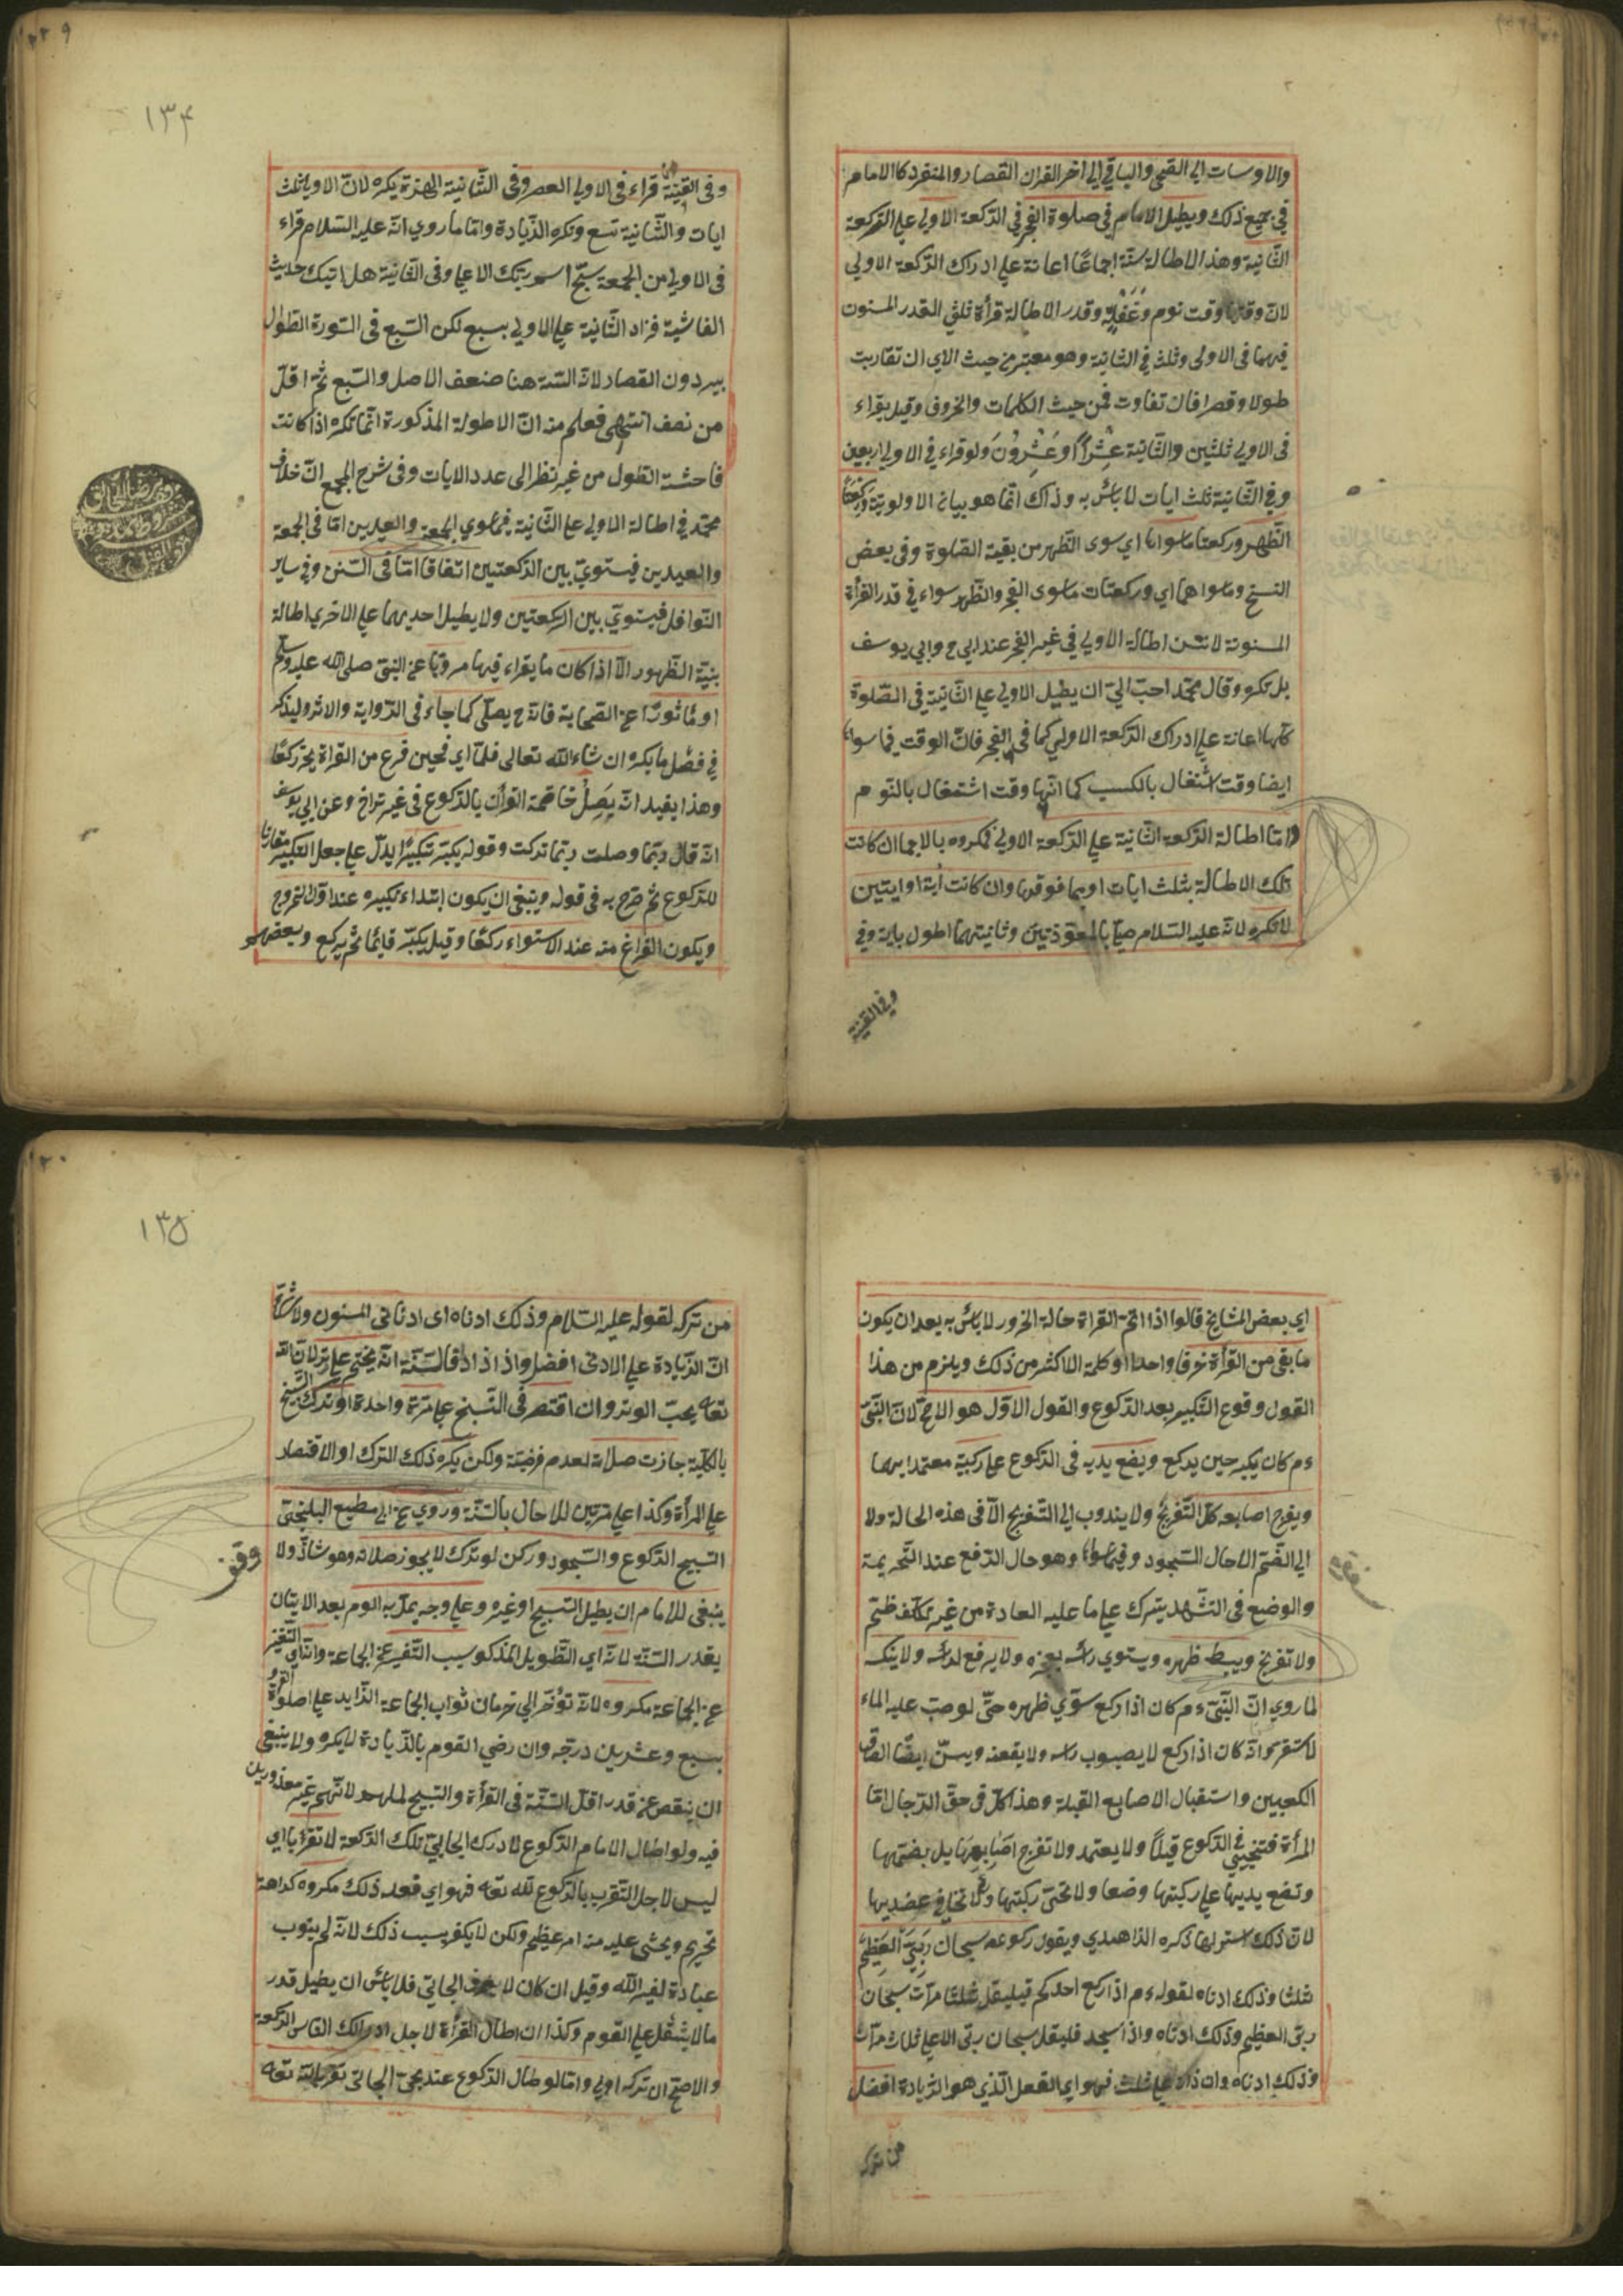 والاوساط الي الضحي والباقي الي اخر القران القصار والمنفرد كالامام
في جميع ذلك ويطيل الامام في صلوة الفجر في الركعة الاولي علي الركعة
الثانية وهذا الاطالة سنة اجماعا اعانة علي ادراك الركعة الاولي
لان وقتها وقت نوم وغفلة وقدر الاطالة قرأة ثلثي القدر المسنون
فيهما في الاولي وثلث في الثانية وهو معتبر من حيث الاي ان تقاربت
طولا وقصرا فان تفاوت فمن حيث الكلمات والحروف وقيل يقراء
في الاولي ثلثين والثانية عشرا او عشرون ولو قراء في الاولي اربعين
وفي الثانية ثلث ايات لا بأس به وذاك انما هو بيان الاولوية وركعتا
الظهر وركعتا ما سواها اي سوي الظهر من بقية الصلوة وفي بعض
النسخ وما سواهما اي وركعتان ما سوي الفجر والظهر سواء في قدر القرأة
المسنونة لا تسن اطالة الاولي في غير الفجر عند ابي ح وابي يوسف
بل تكره وقال محمد احب الي ان يطيل الاولي علي الثانية في الصلوة
كلها اعانة علي ادراك الركعة الاولي كما في الفجر فان الوقت فيما سواه
ايضا وقت اشتغال بالكسب كما انها وقت اشتغال بالنوم
واما اطالة الركعة الثانية علي الركعة الاولي فمكروه بالاجماع ان كانت
تلك الاطالة بثلث ايات او بما فوقها وان كانت اية او ايتين
لا تكره لانه عليه السلام صلي بالمعوذتين وثانيتهما اطول باية وفي
وفي القنية
١٣٤
وفي القنية قراء في الاولي العصر وفي الثانية الهمزة يكره لان الاولي ثلث
ايات والثانية تسع وتكره الزيادة واما ما روي انه عليه السلام قراء
في الاولي من الجمعة سبح اسم ربك الاعلي وفي الثانية هل اتيك حديث
الغاشية فزاد الثانية علي الاولي بسبع لكن السبع في السورة الطوال
يسير دون القصار لان الستة هنا ضعف الاصل والسبع ثمة اقل
من نصف انتهي فعلم منه ان الاطولة المذكورة انما تكره اذا كانت
فاحشة الطول من غير نظر الي عدد الايات وفي شرح المجمع ان خلاف
محمد في اطالة الاولي علي الثانية فيما سوي الجمعة والعيدين اما في الجمعة
والعيدين فيستوي بين الركعتين اتفاقا اما في السنن وفي ساير
النوافل فيستوي بين الركعتين ولا يطيل احديهما علي الاخري اطالة
بنية الظهور الا اذا كان ما يقراء فيها مرويا عن النبي صلي الله عليه وسلم
او ماثورا عن الصحابة فانه ح يصلي كما جاء في الرواية والاثر وليذكر
في فصل ما يكره ان شاء الله تعالي فلما اي فحين فرغ من القراة يخر ركعا
وهذا يفيد انه يصل خاتمة القرأن بالركوع في غير تراخ وعن ابي يوسف
انه قال ربما وصلت ربما تركت وقوله يكبر تكبيرا يدل علي جعل التكبير مقارنا
للركوع ثم صرح به في قوله وينبغي ان يكون ابتداء تكبيره عند اول الخروج
ويكون الفراغ منه عند الاستواء ركعا وقيل يكبر قايما ثم يركع وبعضهم
اي بعض المشايخ قالوا اذا اتم القراة حالة الخرور لا بأس به بعد ان يكون
ما بقي من القرأة حرفا واحدا او كلمة لا اكثر من ذلك ويلزم من هذا
القول وقوع التكبير بعد الركوع والقول الاول هو الاصح لان النبي
ء م كان يكبر حين يركع ويضع يديه في الركوع علي ركبتيه معتمدا بهما
ويفرج اصابعه كل التفريج ولا يندوب الي التفريج الا في هذه الحالة ولا
الي الضم الا حال السجود وفيما سواه وهو حال الرفع عند التحريمة
والوضع في التشهد يترك علي ما عليه العادة من غير تكلف ضم
ولا تفريج ويبسط ظهره ويستوي رأسه بعجزه ولا يرفع رأسه ولا ينكسه
لما روي ان النبي ء م كان اذا ركع سوي ظهره حتي لو صب عليه الماء
لاستقر وانه كان اذا ركع لا يصبوب راسه ولا يقعنه ويسن ايضا الصاق
الكعبين واستقبال الاصابع القبلة وهذا كل في حق الرجال اما
المرأة فتنحني في الركوع قيلا ولا يعتمد ولا تفرج اصابعها بل يضمها
وتضع يديها علي ركبتها وضعا ولا تحني ركبتها ولا تجافي عضديها
لان ذلك استر لها ذكره الزاهدي ويقول ركوعه سبحان ربي العظيم
ثلثا وذلك ادناه لقوله ء م اذا ركع احدكم فيليقل ثلثا مرات سبحان
ربي العظيم وذلك ادناه واذا سجد فليقل سبحان ربي الاعلي ثلاث مرات
وذلك ادناه وان زاد علي ثلث فهو اي الفعل الذي هو الزيادة افضل
من تركه
١٣٥
من تركه لقوله عليه السلام وذلك ادناه اي ادنا في المسنون ولا شك
ان الزيادة علي الادني افضل واذا زاد فالسنة انه يختم علي وتر لان الله
تعالي يحب الوتر وان اقتصر في التسبيح علي مرة واحدة او ترك التسبيح
بالكلية جازت صلاته لعدم فرضيته ولكن يكره ذلك الترك او الاقتصار
علي المرأة وكذا علي مرتين للاحال بالسنة وروي عن ابي مطيع البلخي
التسبيح الركوع والسجود وركن لو ترك لا يجوز صلاته وهو شاذ ولا
ينبغي للامام ان يطيل التسبيح او غيره وعلي وجه يمل به القوم بعد الاتيان
بقدر السنة لانه اي التطويل المذكور سبب التنفير عن الجماعة وانه اي التنفير
عن الجماعة مكروه لانه تؤخر الي حرمان ثواب الجماعة الزايد علي صلوة
بسبع وعشرين درجة وان رضي القوم بالزيادة لا يكره ولا ينبغي
ان ينقص عن قدر اقل السنة في القرأة والتسبيح لملهم لانهم غير معذورين
فيه ولو اطال الامام الركوع لادراك الجايي تلك الركعة لا تقربا اي
ليس لاجل التقرب بالركوع لله تعالي فهو اي فعله ذلك مكروه كراهة
تحريم ويخشي عليه منه امر عظيم ولكن لا يكفر بسبب ذلك لانه لم ينوب
عبادة لغير الله وقيل ان كان لا يعرف الجاني فلا بأس ان يطيل قدر
ما لا يثقل علي القوم وكذا ان اطال القرأة لاجل ادراك الناس الركعة
والاصح ان تركه اولي واما لو طال الركوع عند مجئ الجاني تقربا لله تعالي